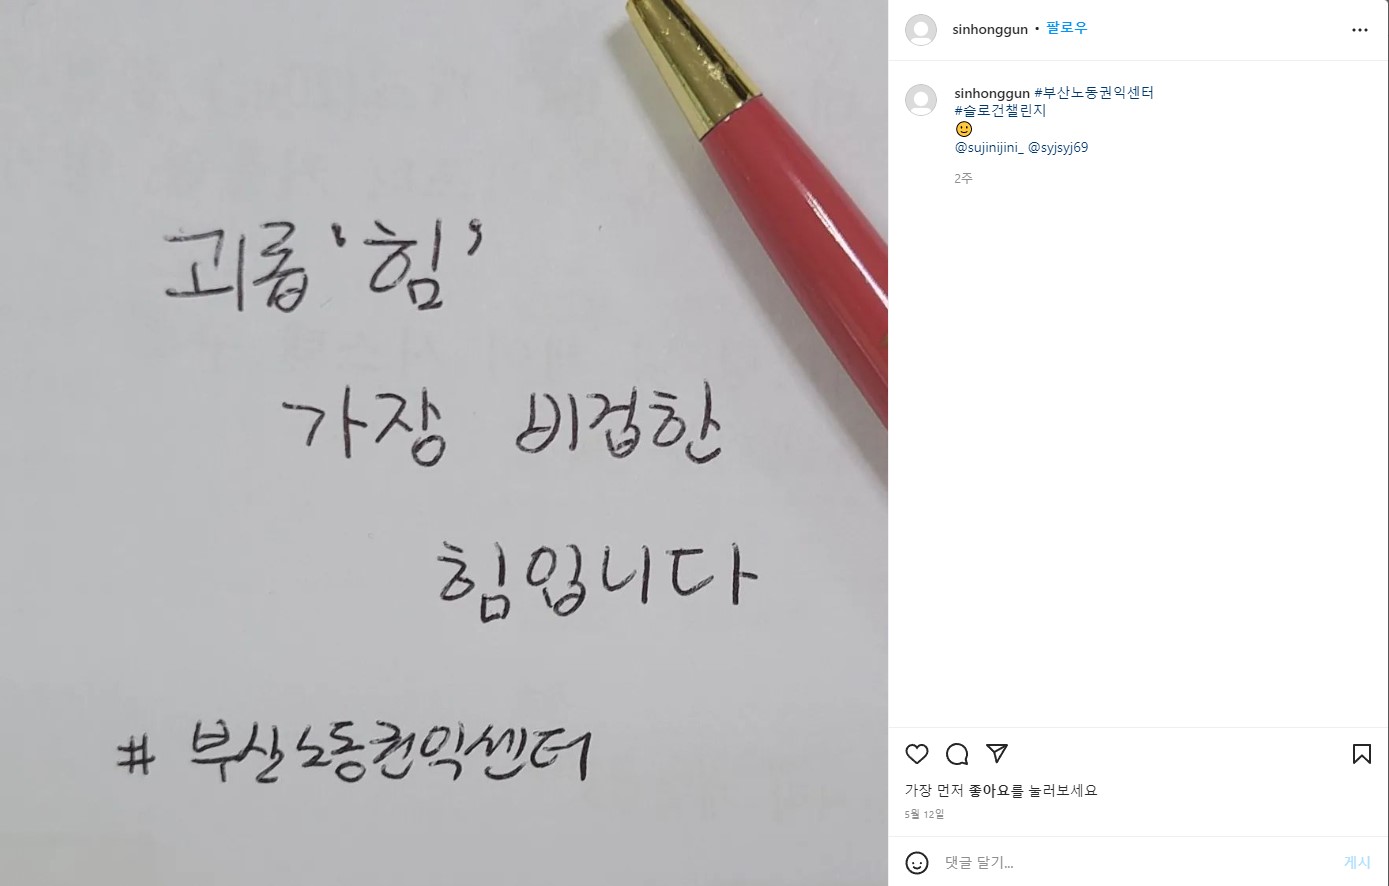 괴롭‘힘’
가장 비겁한
힘입니다
# 부산노동권익센터
sinhonggun • 팔로우
sinhonggun #부산노동권익센터
#슬로건챌린지
@sujinijini_ @syjsyj69
2주
가장 먼저 좋아요를 눌러보세요
5월 12일
댓글 달기...
게시